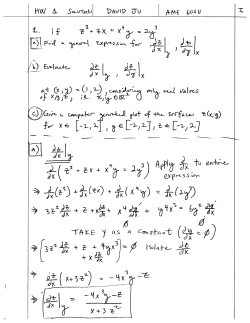 HW 1 SOLUTION DAVID JU AME 60611 1
1. If z³ + zx + x⁴y = 2y³
(a) Find a general expression for ∂z/∂x|y , ∂z/∂y|x
(b) Evaluate ∂z/∂x|y , ∂z/∂y|x
at (x,y) = (1,2), considering only real values
of x,y,z, i.e. x,y,z ∈ ℝ
(c) Give a computer generated plot of the surface z(x,y)
for x ∈ [-2,2], y ∈ [-2,2], z ∈ [-2,2]
(a) ∂z/∂x|y
∂/∂x (z³ + zx + x⁴y = 2y³) Apply ∂/∂x to entire
expression
⇒ ∂/∂x(z³) + ∂/∂x(zx) + ∂/∂x(x⁴y) = ∂/∂x(2y³)
⇒ 3z² ∂z/∂x + z + x ∂z/∂x + x⁴ ∂y/∂x + y4x³ = 6y² ∂y/∂x
TAKE y AS A CONSTANT (∂y/∂x = 0)
⇒ [3z² ∂z/∂x + z + 4yx³ + x ∂z/∂x] = 0 Isolate ∂z/∂x
⇒ ∂z/∂x (x+3z²) = -4x³y - z
⇒ ∂z/∂x|y = (-4x³y - z)/(x + 3z²)